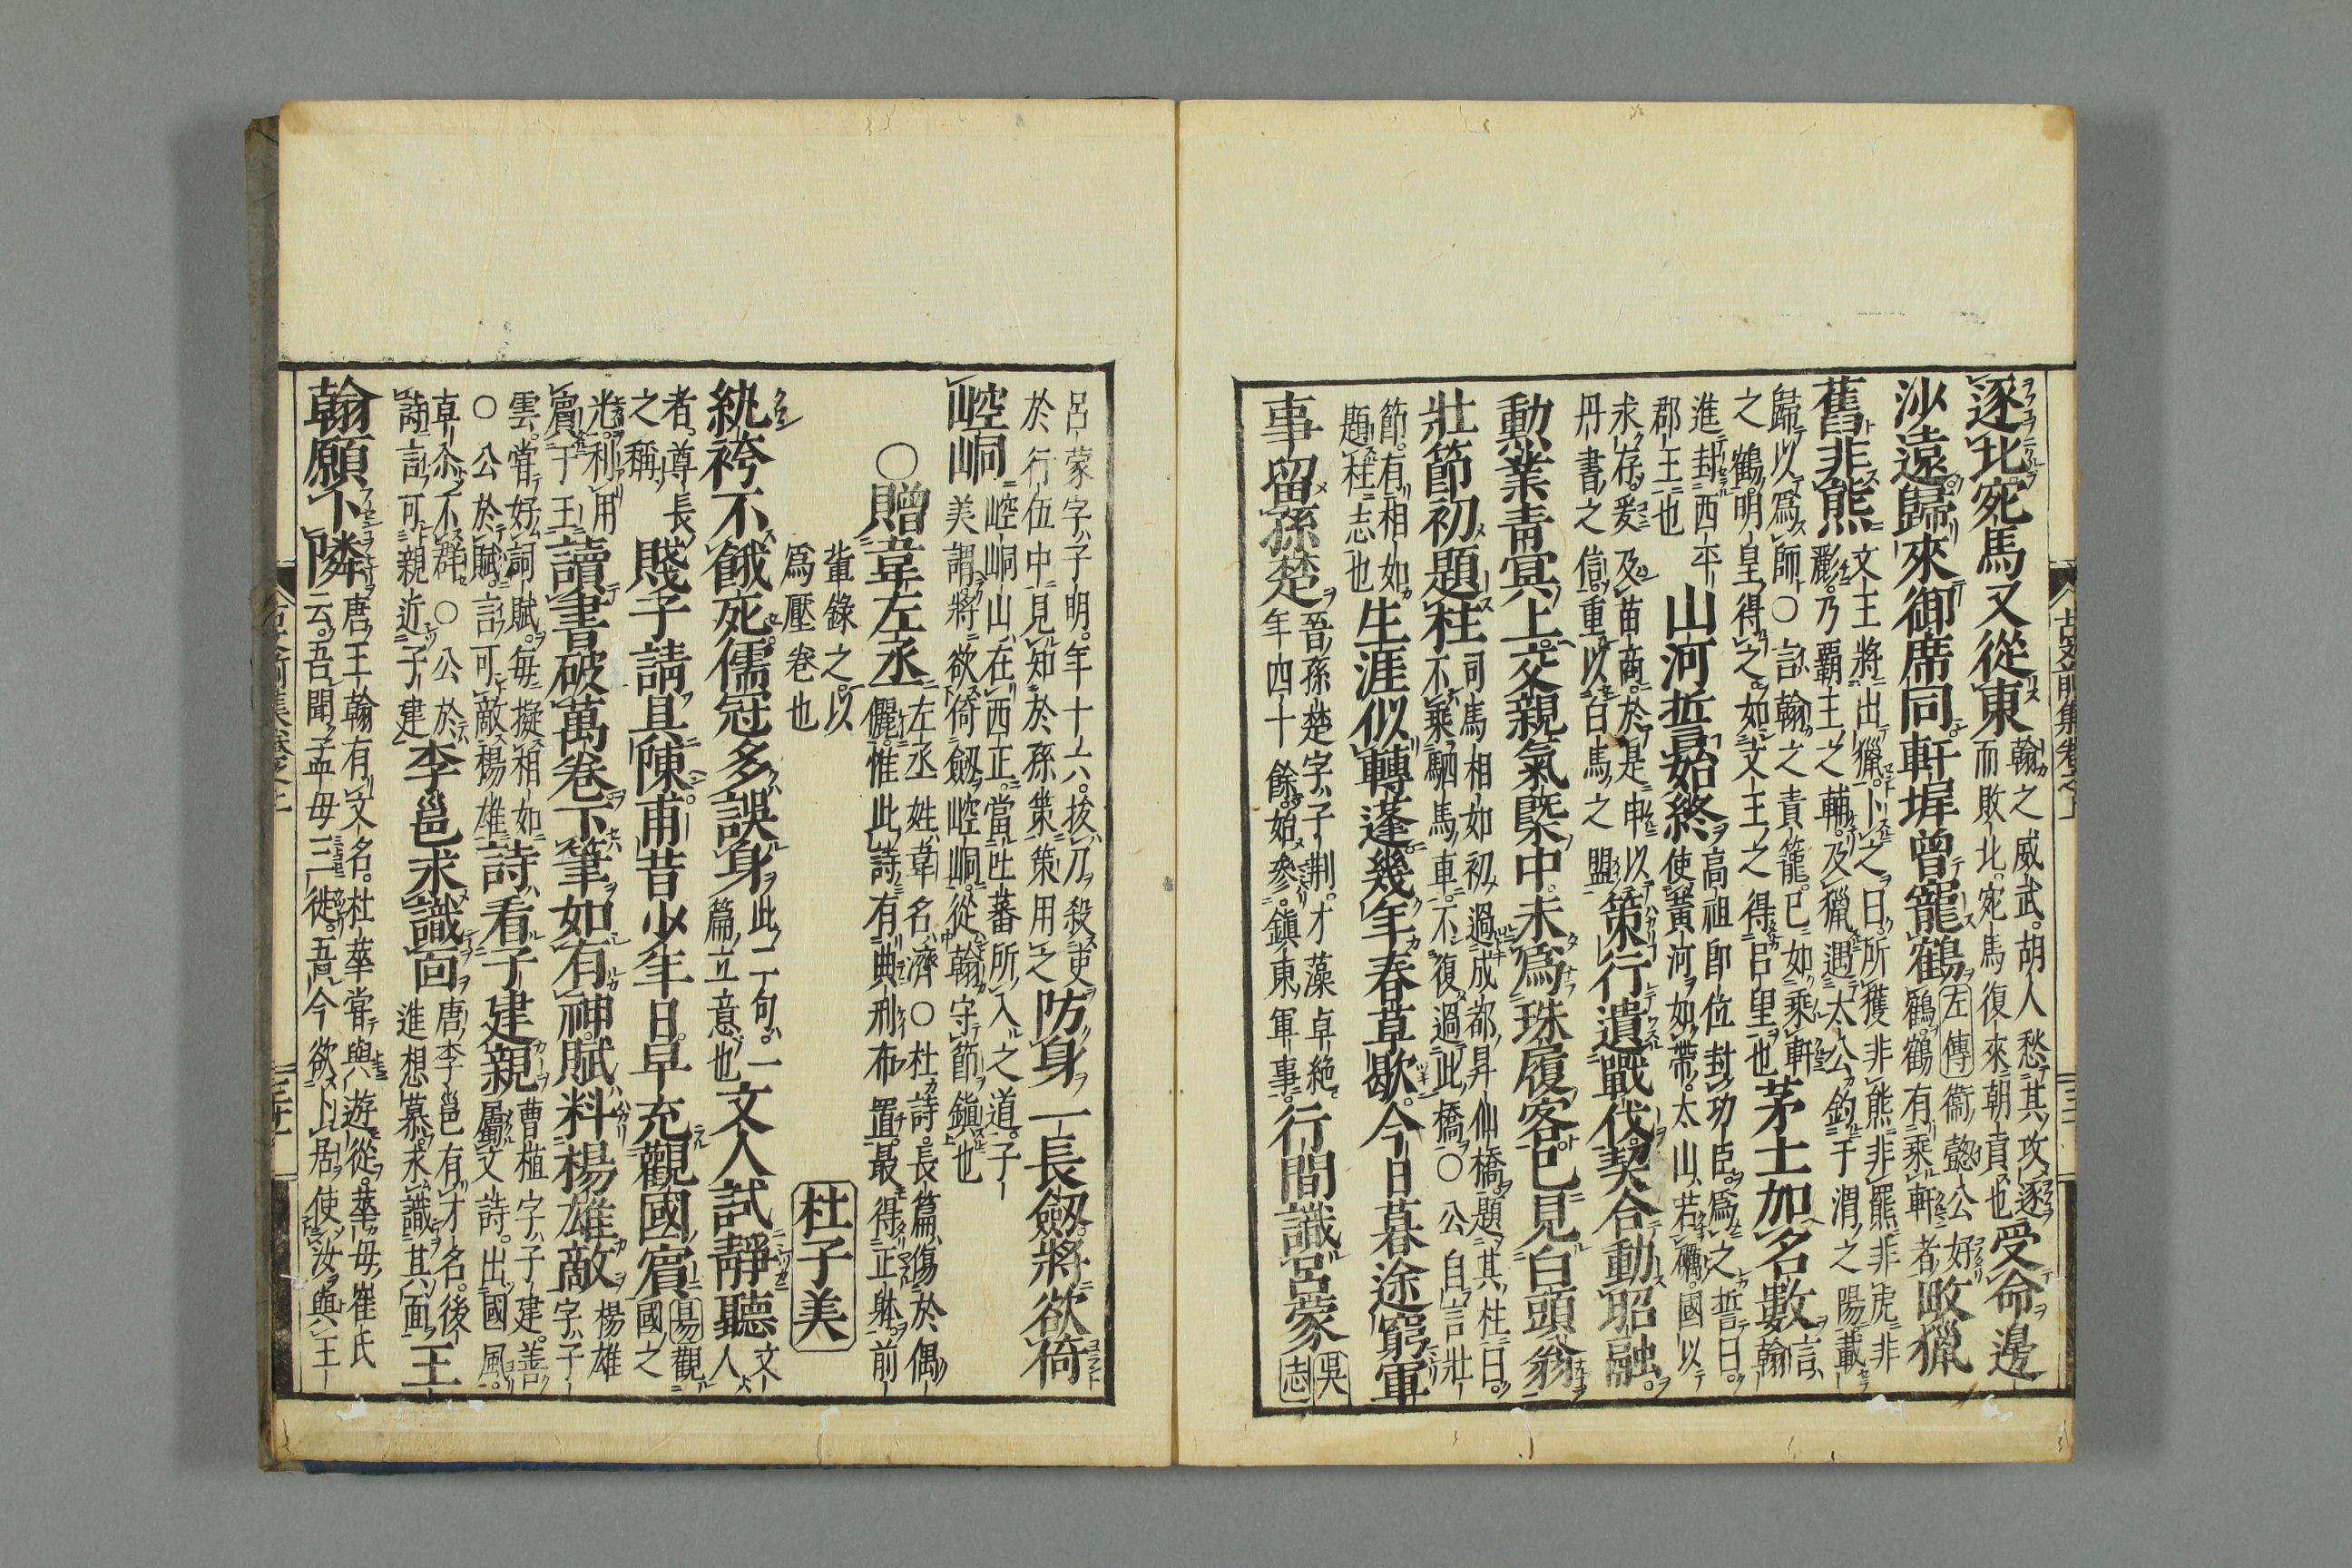 逐北宛馬又從東翰之威武胡人愁其攻逐而敗北宛馬復來朝貢也受命邊
沙遠歸來御席同軒墀曾寵鶴左傳衞懿公好鶴鶴有乘軒者畋獵
舊非熊文王將出獵卜之曰所獲非熊非羆非虎非彲乃覇王之輔及獵遇太公釣于渭之陽載
歸以爲師○言翰之責寵已如乘軒之鶴明皇得之如文王之得呂望也茅土加名數翰言
進封西平郡王也山河誓始終高祖即位封功臣爲之誓曰使黃河如帶太山若礪國以
求存爰及苗裔於是申以丹書之信重以白馬之盟策行遺戰伐契合動昭融
勲業青冥上交親氣槩中未爲珠履客已見白頭翁
壯節初題柱司馬相如初過成都昇仙橋題其柱曰不乘駟馬車不復過此橋○公自言壯
節有相如題柱志也生涯似轉蓬幾年春草歇今日暮途窮軍
事留孫楚晉孫楚字子荆才藻卓絶年四十餘始參鎭東軍事行間識呂蒙吳志
呂蒙字子明年十六拔刀殺吏於行伍中見知於孫策策用之防身一長劔將欲倚
崆峒崆峒山在西正當吐蕃所入之道子美謂將欲倚劔崆峒從翰守節鎭也
○贈韋左丞左丞姓韋名濟○杜詩長篇傷於偶儷惟此詩有典刑布置最得正躰前
軰錄之以爲壓卷也
杜子美
紈袴不餓死儒冠多誤身此二句一篇立意也文人試靜聽文人
者尊長之稱賤子請具陳甫昔少年日早充觀國賓易觀國之
光利用賓于王讀書破萬卷下筆如有神賦料楊雄敵楊雄字子
雲嘗好詞賦每擬相如○公於賦言可敵楊雄詩看子建親曹植字子建善屬文詩出國風
卓尒不群○公於詩言可親近子建李邕求識面唐李邕有才名後進想慕求識其面王
翰願卜隣唐王翰有文名杜華嘗與遊從華母崔氏云吾聞孟母三徙吾今欲卜居使汝與王